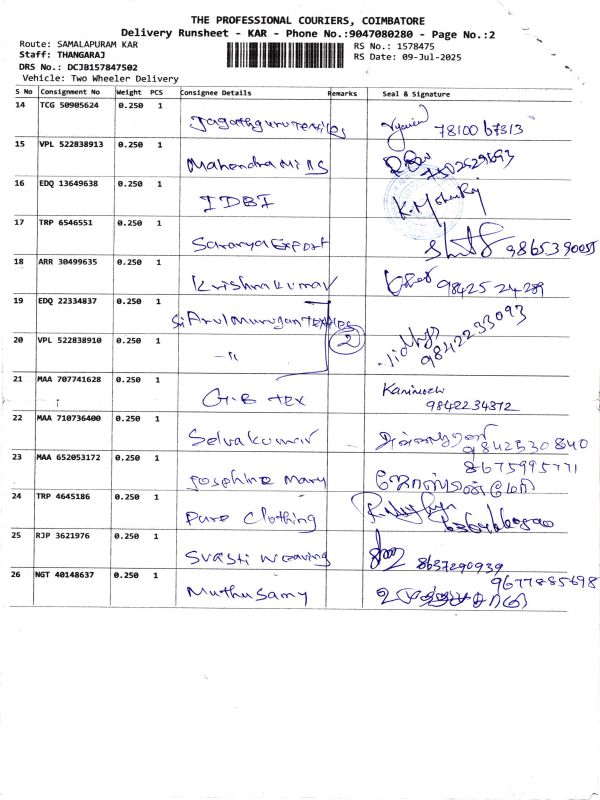 THE PROFESSIONAL COURIERS, COIMBATORE
Delivery Runsheet - KAR - Phone No.:9047080280 - Page No.:2
Route: SAMALAPURAM KAR
RS No.: 1578475
Staff: THANGARAJ
RS Date: 09-Jul-2025
DRS No.: DCJB157847502
Vehicle: Two Wheeler Delivery
S No Consignment No Weight PCS Consignee Details Remarks Seal & Signature
14 TCG 50905624 0.250 1
Jagathguru Texiles 78100 67313
15 VPL 522838913 0.250 1
Mahendra Mills
16 EDQ 13649638 0.250 1
IDBI
17 TRP 6546551 0.250 1
Saranya Export 9865390055
18 ARR 30499635 0.250 1
Krishnakumar 98425 24289
19 EDQ 22334837 0.250 1
Sri Arul Murugan Texiles
20 VPL 522838910 0.250 1
-"- 2 9842233093
21 MAA 707741628 0.250 1
G.B tex
9842234372
22 MAA 710736400 0.250 1
Selvakumar 9842530840
23 MAA 652053172 0.250 1 8675995771
Josphine Mary ஜோஸ்பின் மேரி
24 TRP 4645186 0.250 1
Pure Clothing
25 RJP 3621976 0.250 1
Svasti Weaving 8637290939
26 NGT 40148637 0.250 1
Muthusamy